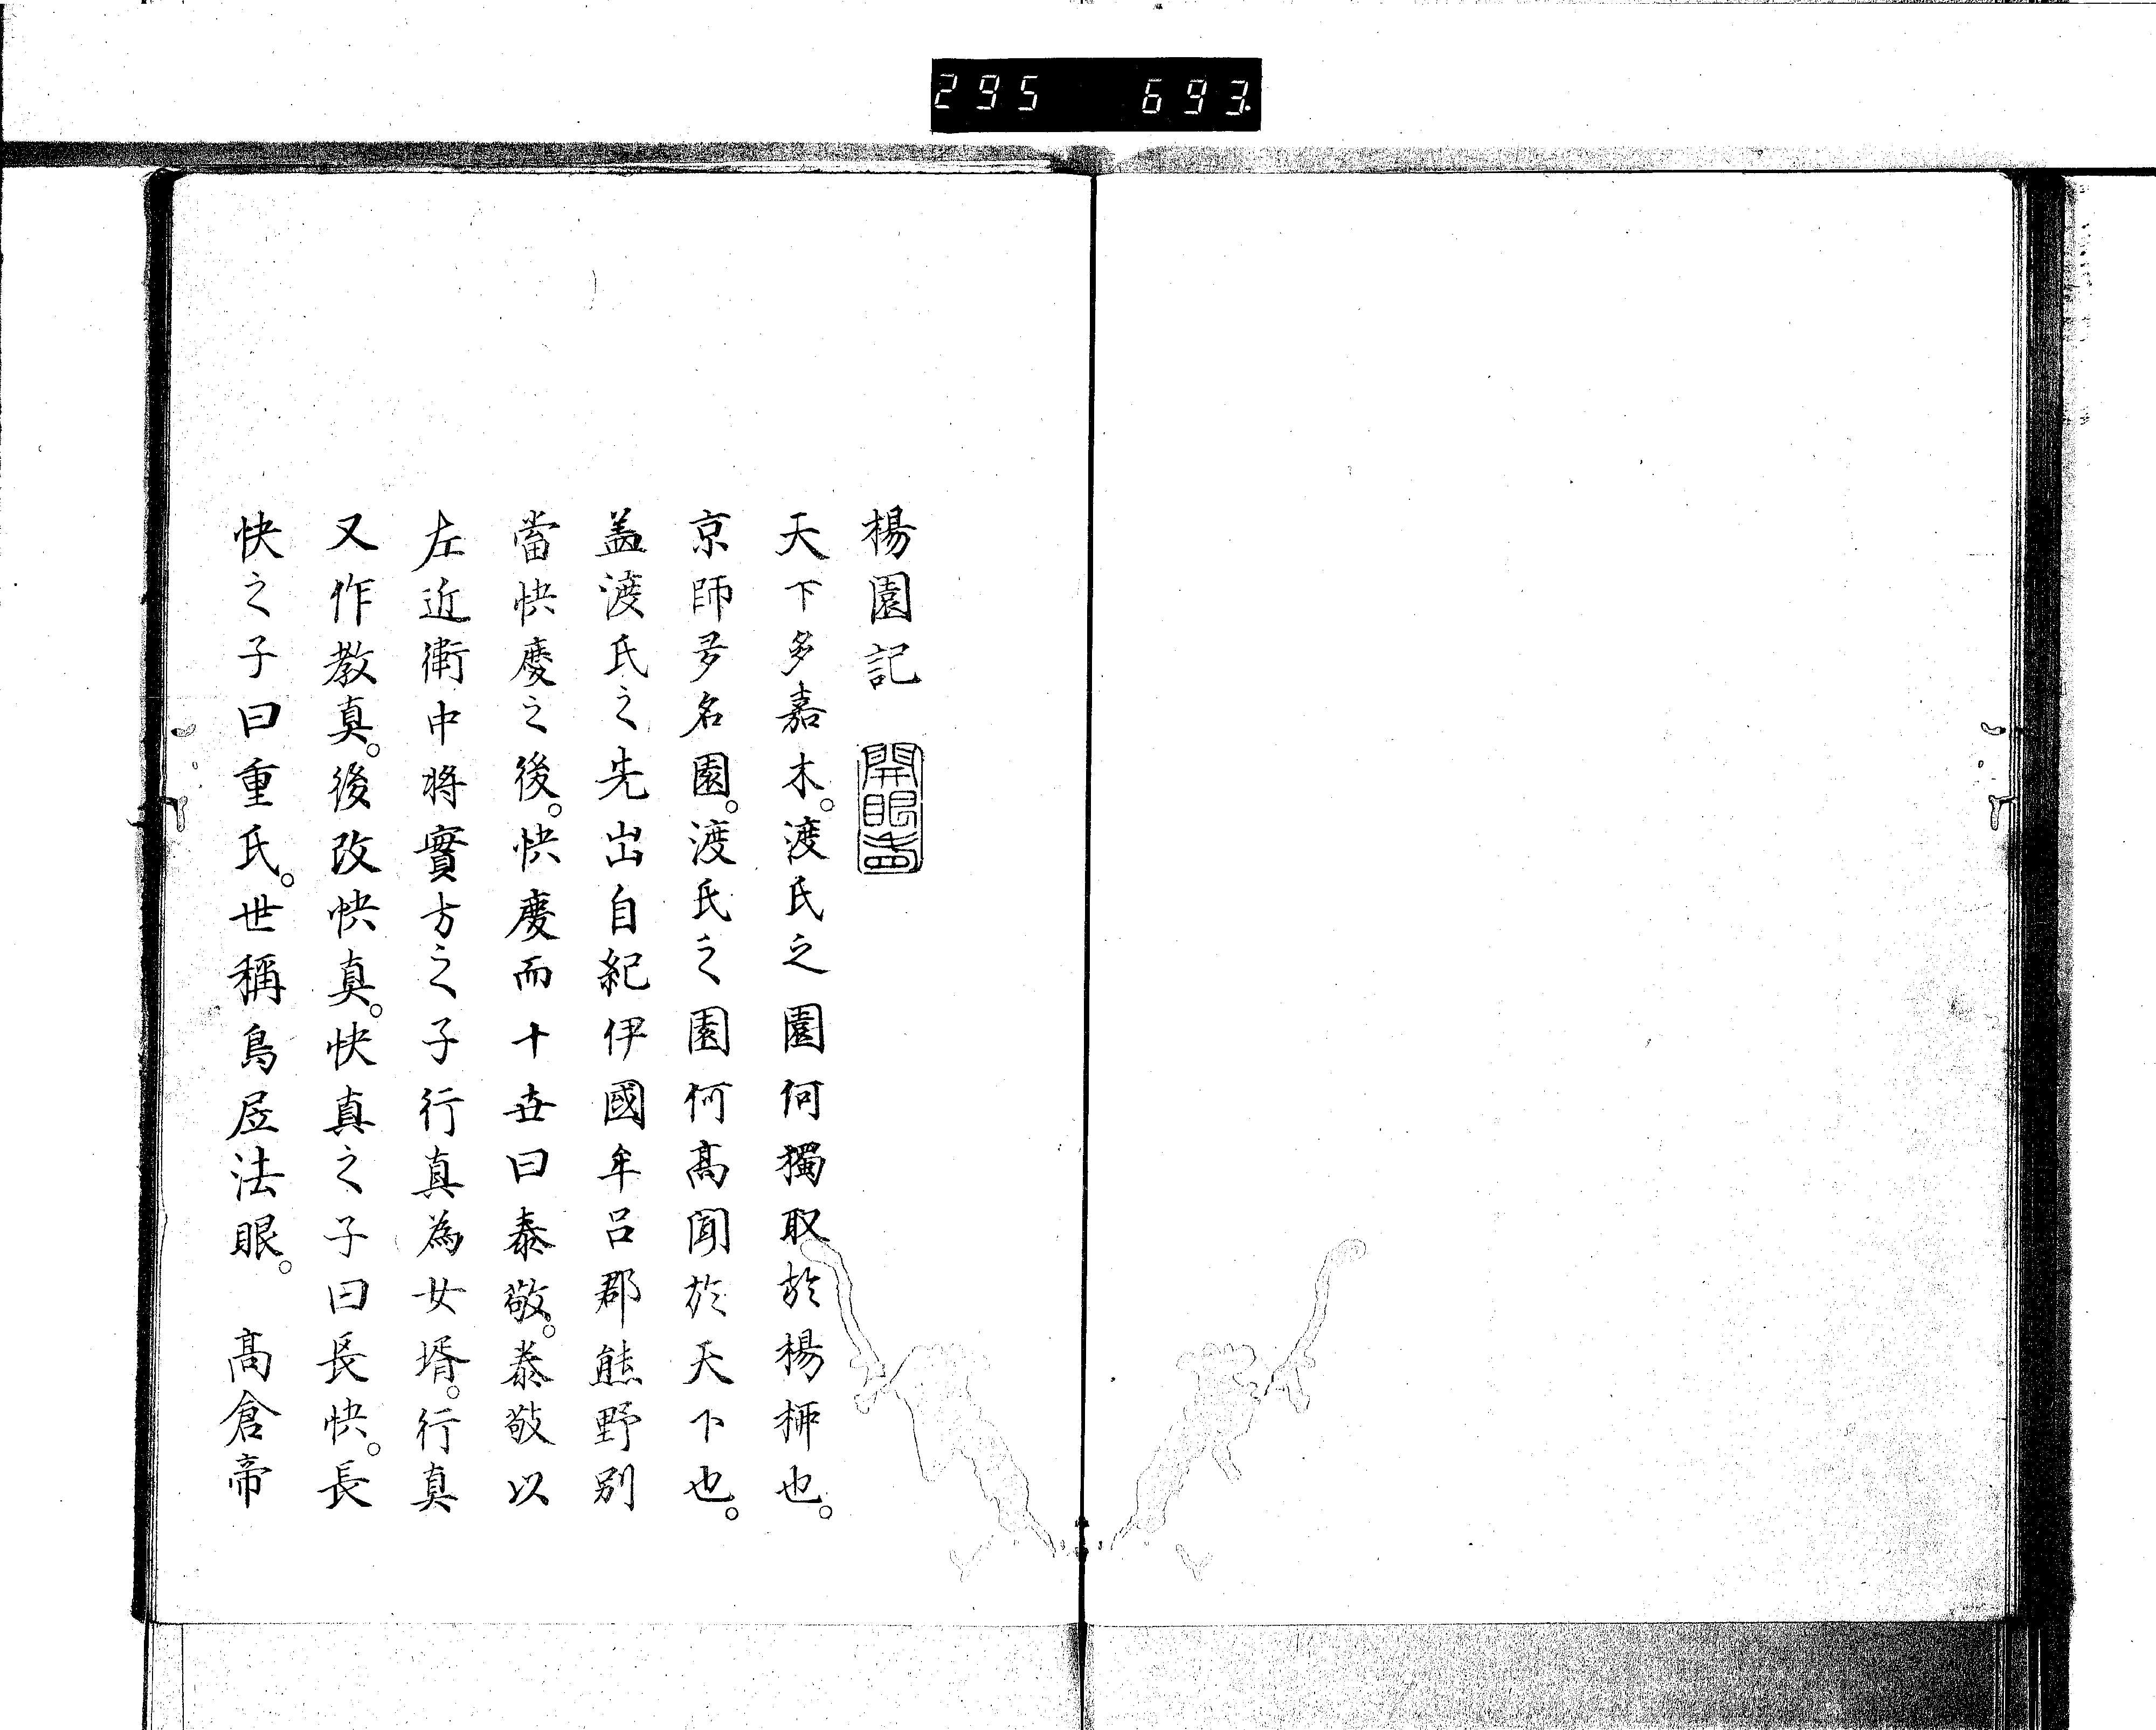 295 693.
楊園記
開眼
天下多嘉木。渡氏之園何獨取於楊柳也。
京師多名園。渡氏之園何髙聞於天下也。
盖渡氏之先出自紀伊國牟吕郡熊野别
當快慶之後。快慶而十世曰泰敬。泰敬以
左近衛中将實方之子行真為女壻。行真
又作教真。後改快真。快真之子曰長快。長
快之子曰重氏。世稱鳥居法眼。 髙倉帝